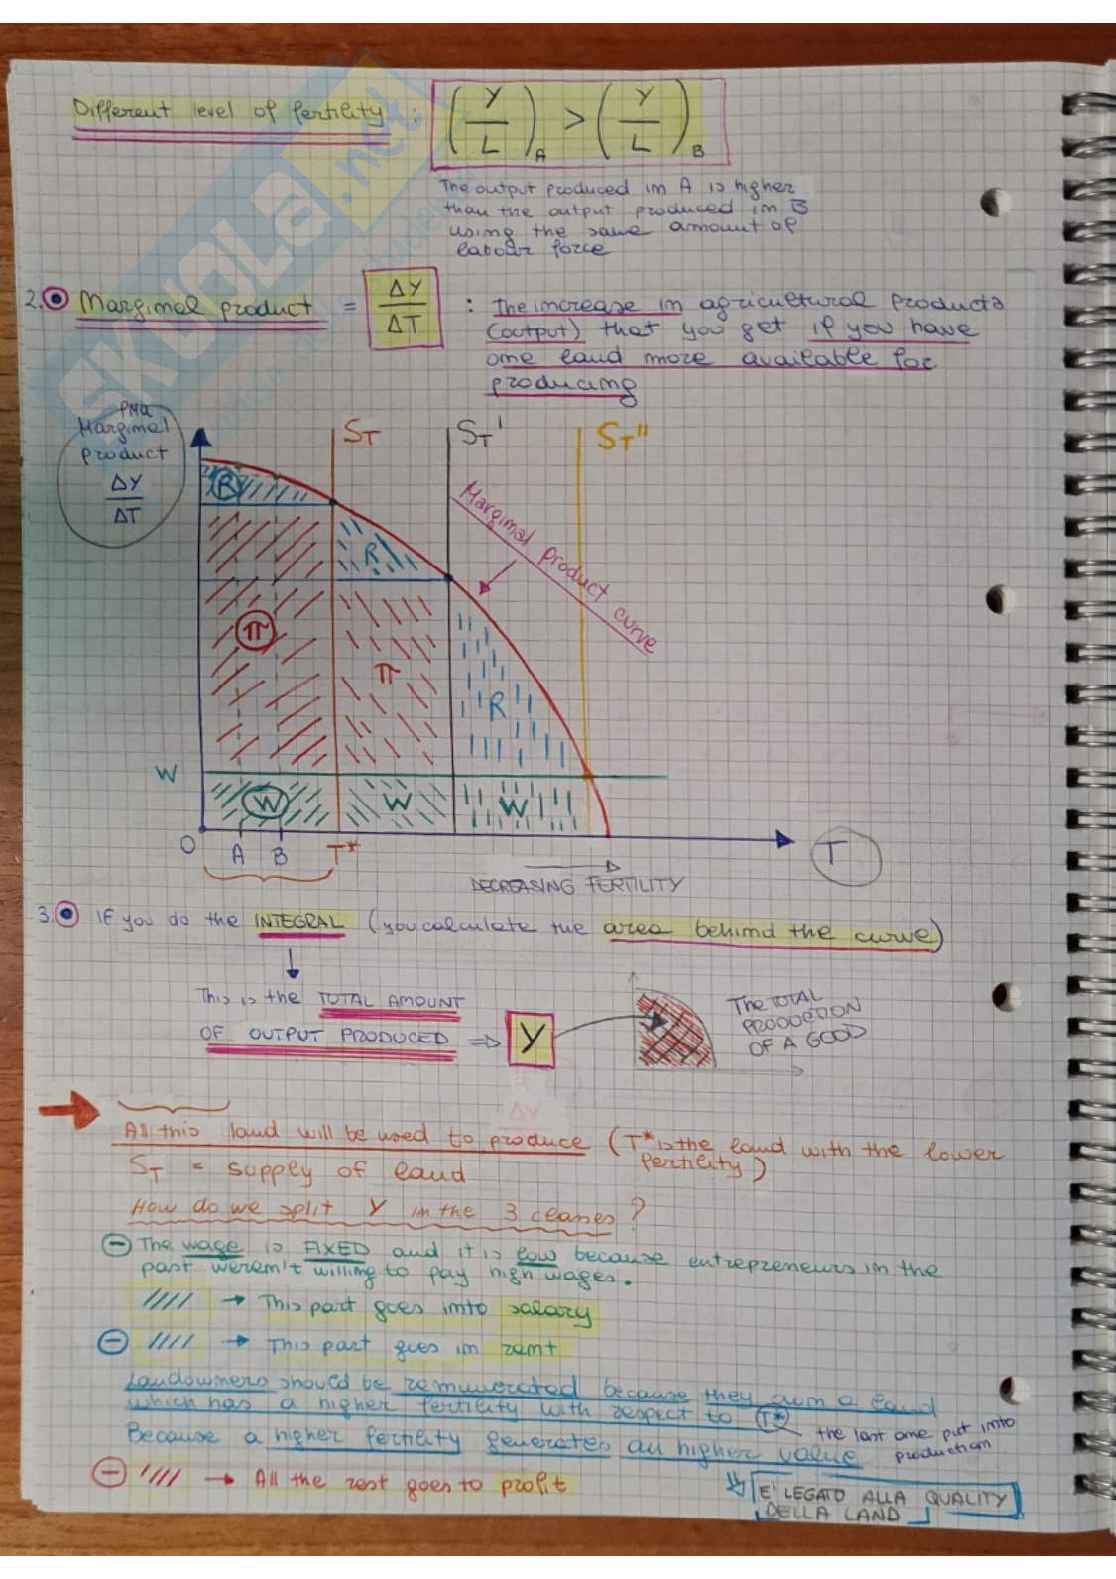 Different level of fertility : (Y/L)A > (Y/L)B
The output produced in A is higher
than the output produced in B
using the same amount of
labour force
2. Marginal product = ΔY/ΔT : The increase in agricultural products
(output) that you get if you have
one land more available for
producing
PMa
Marginal
product
ΔY
ΔT
ST
ST'
ST''
R
R
Marginal product curve
π
π
R
W
W
W
W
O
A
B
T*
T
DECREASING FERTILITY
3. IF you do the INTEGRAL (you calculate the area behind the curve)
This is the TOTAL AMOUNT
OF OUTPUT PRODUCED ⇒ Y
The TOTAL
PRODUCTION
OF A GOOD
All this land will be used to produce (T* is the land with the lower
fertility)
ST = supply of land
How do we split Y in the 3 classes?
The wage is FIXED and it is low because entrepreneurs in the
past weren't willing to pay high wages.
//// → This part goes into salary
//// → This part goes in rent
Landowners should be remunerated because they own a land
which has a higher fertility with respect to T* the last one put into
production
Because a higher fertility generates an higher value
//// → All the rest goes to profit
E' LEGATO ALLA QUALITY
DELLA LAND
SKUOLA.net